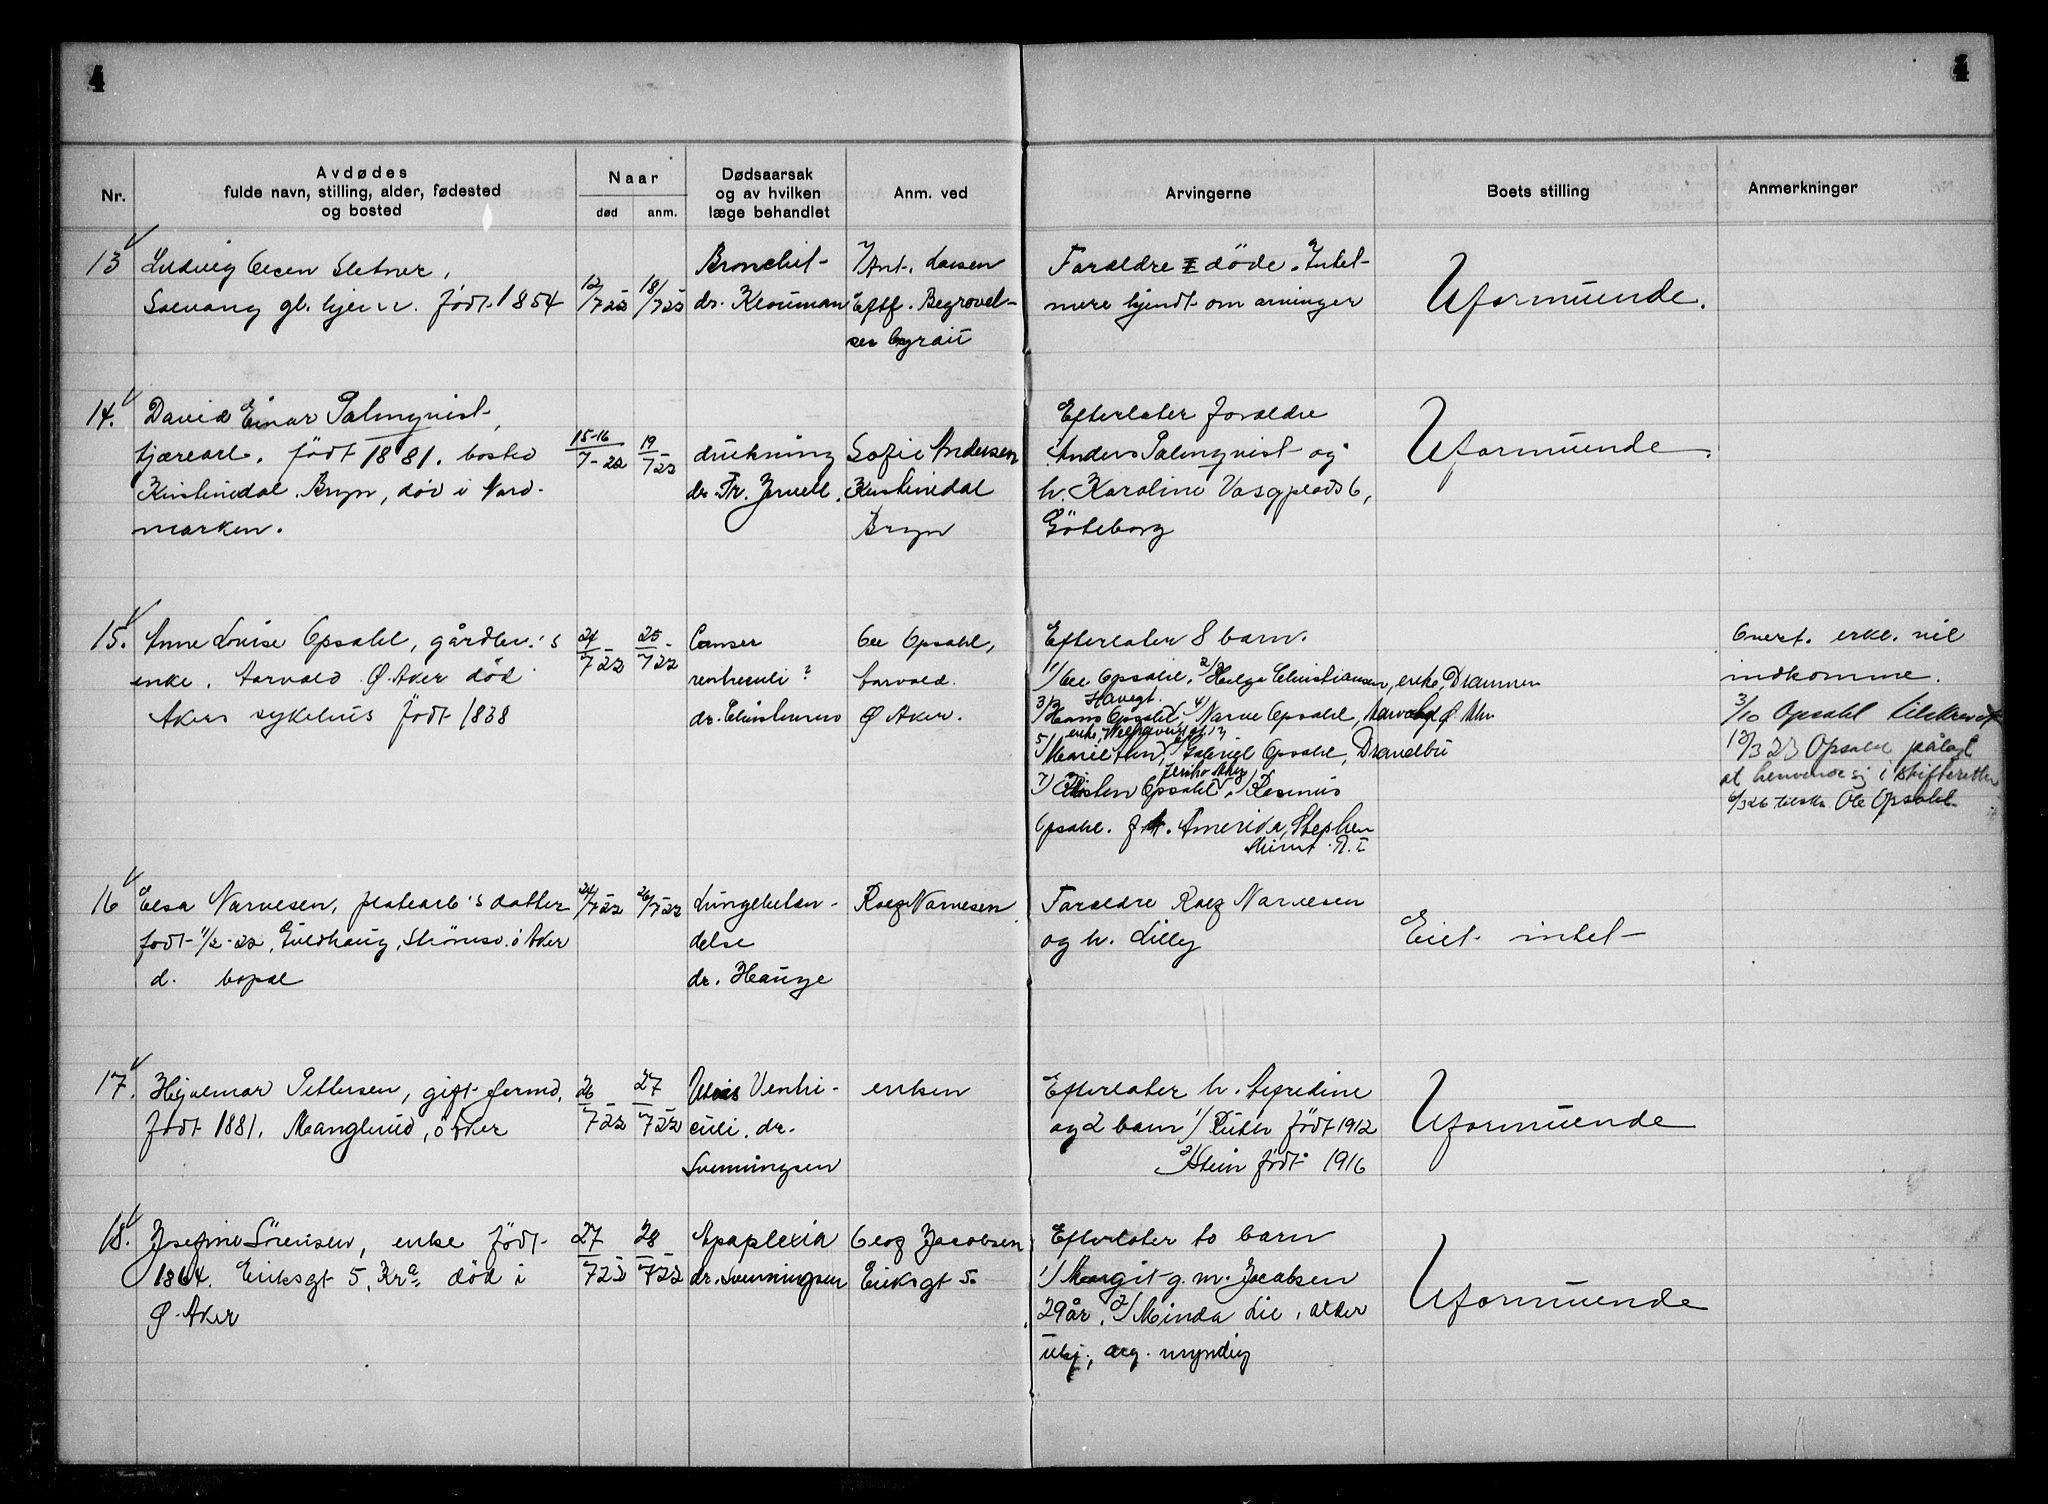 4
4
Nr.
Avdødes
fulde navn, stilling, alder, fødested
og bosted
Naar
død
anm.
Dødsaarsak
og av hvilken
læge behandlet
Anm. ved
Arvingerne
Boets stilling
Anmerkninger
13
Ludvig Olsen Sletner,
Solvang gl. hjem. født 1854
12/7 22
18/7 22
Bronchit
dr. Klouman
Ant. Larsen
Eftf. Begravel-
ses byraū
Forældre døde. Intet
mere kjendt om arvinger
Uformūende.
14.
David Einar Palmqvist,
tjærearb. født 1881. bosted
Kristinedal. Bryn, død i Nord-
marken.
15-16/7-22
19/7 22
drukning
dr. Fr. Jervell.
Sofie Andersen
Kristinedal
Bryn
Efterlater forældre
Anders Palmqvist og
h. Karoline Vasaplads 6,
Göteborg
Uformūende.
15.
Anne Louise Opsahl, gårdbr.'s
enke. Aarvold Ø. Aker død i
Akers sykehūs født 1838
24/7 22
25/7 22
Canser
ventriculi ?
dr.
Ole Opsahl,
Aarvold.
Ø Aker.
Efterlater 8 barn.
1/ Ole Opsahl, 2/ Helga Christiansen, enke, Drammen
Havegt.
3/ Hans Opsahl, 4/ Narve Opsahl, Aarvold Ø. Akr.
5/ 6/ Gabriel Opsahl,
7/ Opsahl, 8/ Rasmus
Opsahl. f. t. Amerika, Stephen
Opsahl tilskrevet
3/10
12/3 23 Opsahl pålagt
at henvende sig i skifteretten
6/3 26 tilskr. Ole Opsahl.
indkomme.
16
Elsa Narvesen, platearb's datter
født 11/2-22, Gūldhaug, Strømsv. Ø Aker
d. bopæl
24/7 22
26/7 22
Lungebetæn-
delse
dr. Hauge
Rolf Narvesen
Forældre Rolf Narvesen
og h. Lilly
Eiet intet
17.
Hjalmar Pettersen, gift formd,
født 1881. Manglerud, Ø Aker
26/7 22
27/7 22
Ulcus Ventri-
culi. dr.
Svenningsen
enken
Efterlater h. Alfredine
og 2 barn 1/ Ruth født 1912
2/ Stein født 1916
Uformūende
18.
Josefine Sörensen, enke født
1864. Eriksgt 5, Kra. død i
Ø. Aker
27/7 22
28/7 22
Apoplexia
dr. Svenningsen
Olaf Jacobsen
Eriksgt 5.
Efterlater to barn
1/ Margit g. m. Jacobsen
29 år, 2/ Minda Lie, alder
ukj., myndig
Uformūende